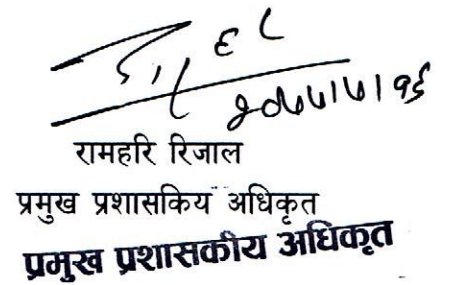 रामहरि रिजाल
प्रमुख प्रशासकिय अधिकृत
प्रमुख प्रशासकीय अधिकृत